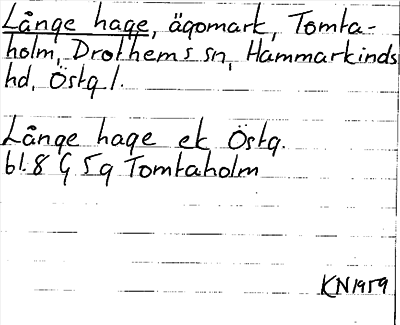 Långe hage, ägomark, Tomta-
holm, Drothems sn, Hammarkinds
hd, Östg.l.
Långe hage ek Östg.
bl.8 G 5g Tomtaholm
KN1959